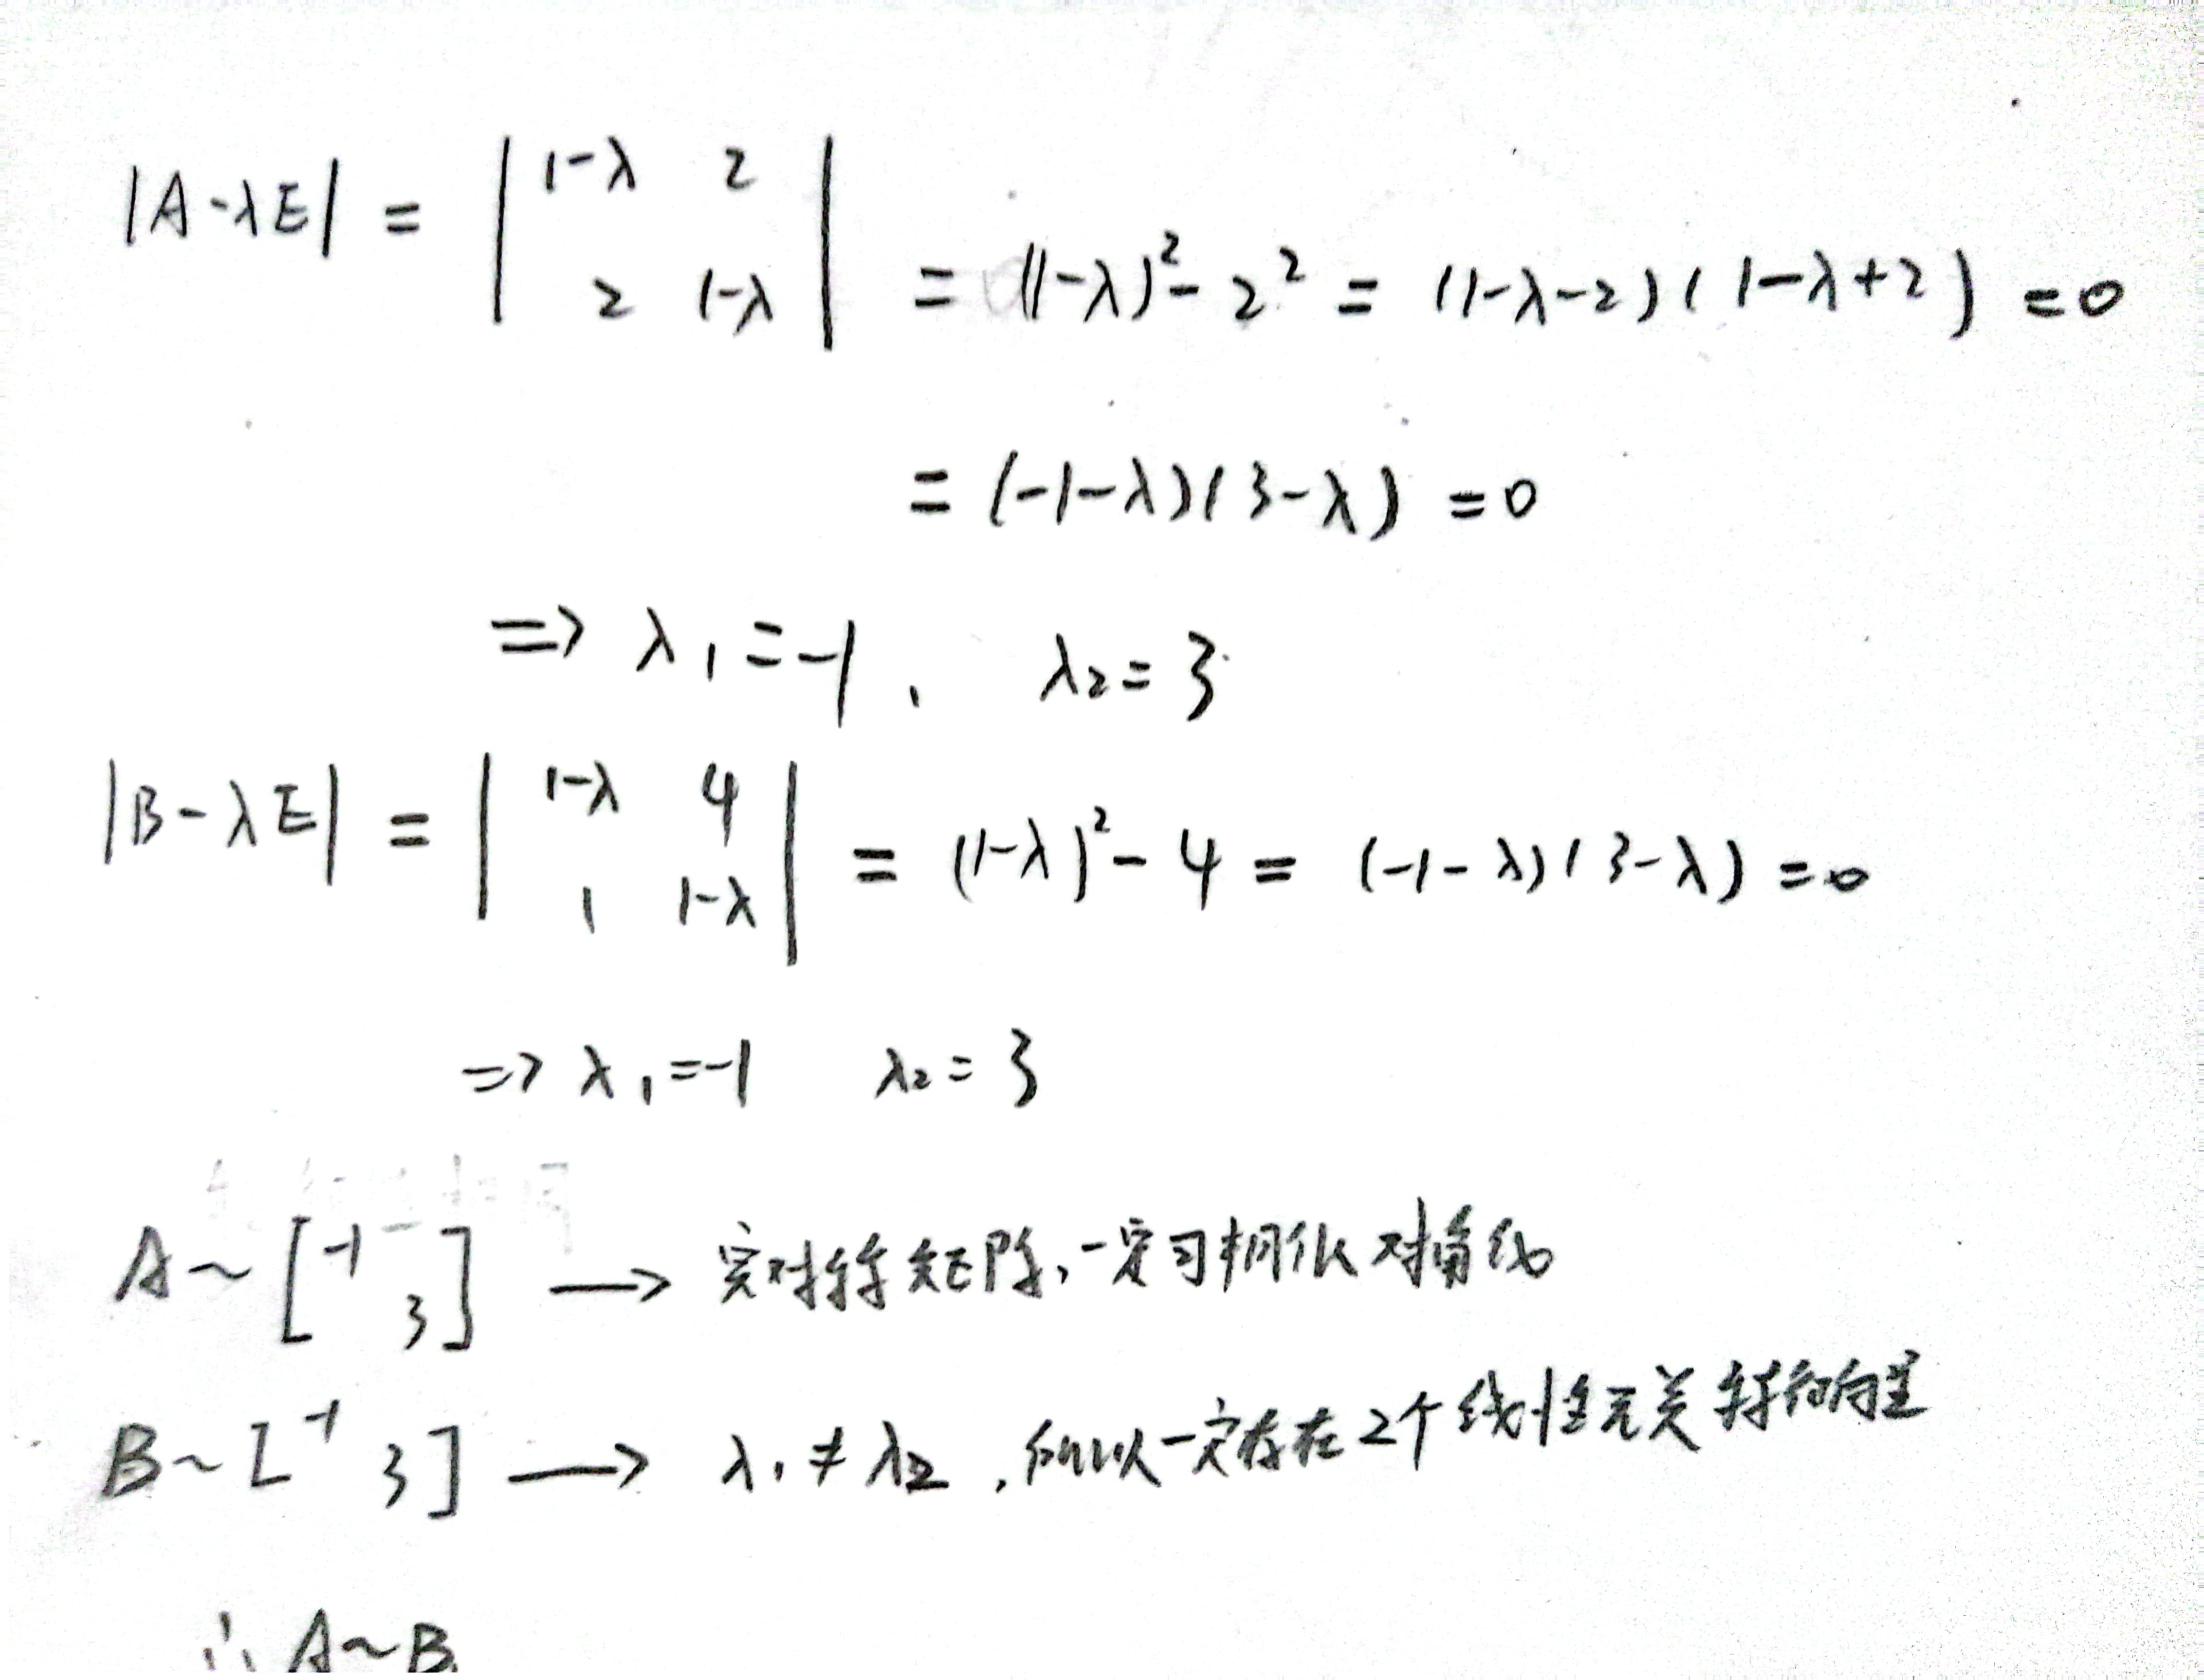 |A-λE| = | 1-λ 2 |
| 2 1-λ | = (1-λ)²- 2² = (1-λ-2)(1-λ+2) =0
= (-1-λ)(3-λ) =0
=> λ₁=-1, λ₂=3
|B-λE| = | 1-λ 4 |
| 1 1-λ | = (1-λ)²- 4 = (-1-λ)(3-λ) =0
=> λ₁=-1 λ₂=3
A~[-1 3] → 实对称矩阵,一定可相似对角化
B~[-1 3] → λ₁≠λ₂,所以一定存在2个线性无关特征向量
∴ A~B.